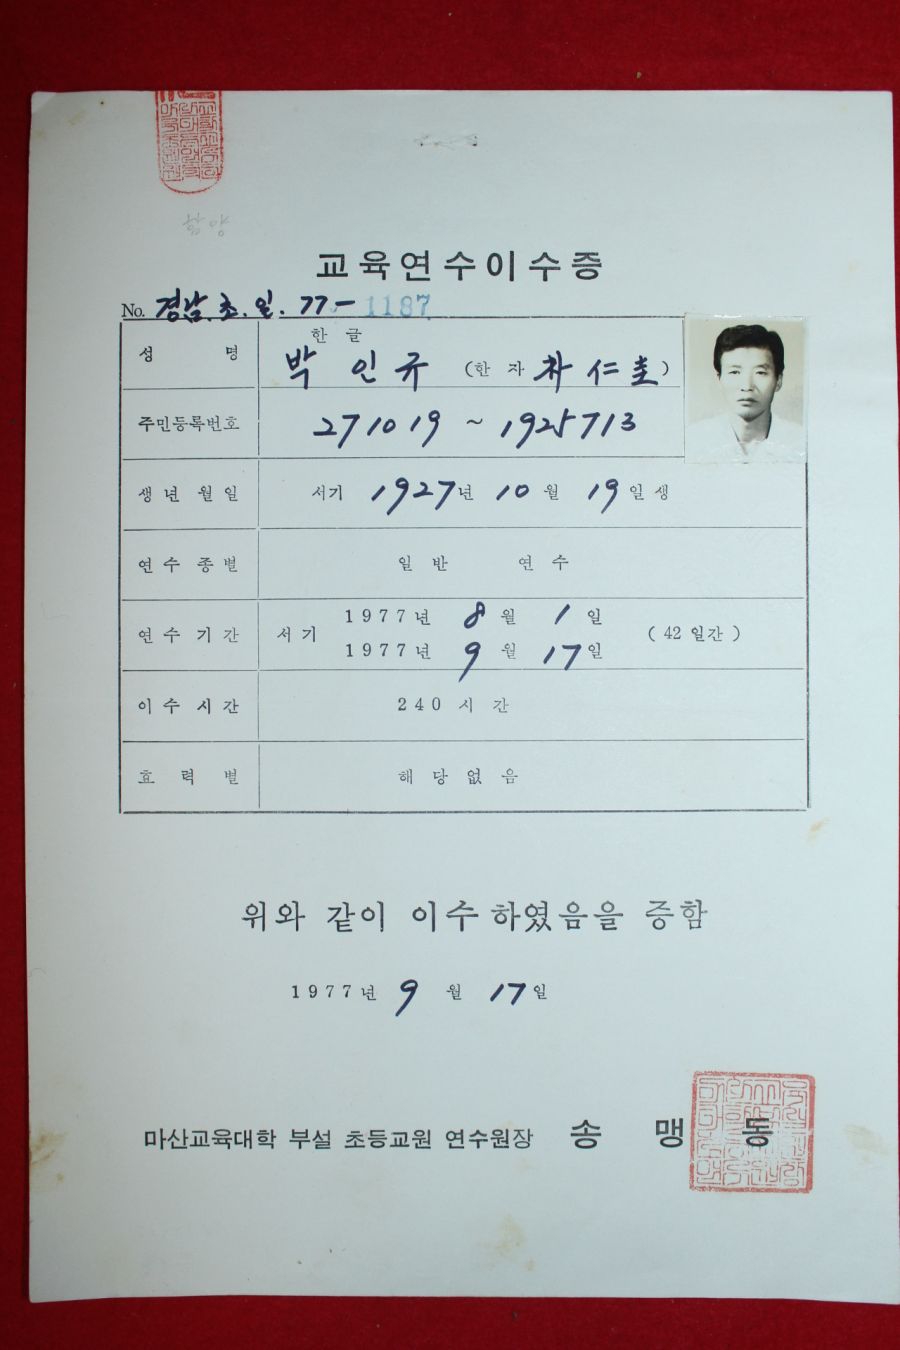 교육연수이수증
No. 경남. 초. 일. 77- 1187
성 명 한글 박 인 규 (한자 朴 仁 圭)
주민등록번호 271019 ~ 1925713
생년월일 서기 1927년 10월 19일생
연수종별 일반 연수
연수기간 서기 1977년 8월 1일
1977년 9월 17일 (42일간)
이수시간 240시간
효력별 해당없음
위와 같이 이수하였음을 증함
1977년 9월 17일
마산교육대학 부설 초등교원 연수원장 송 맹 동